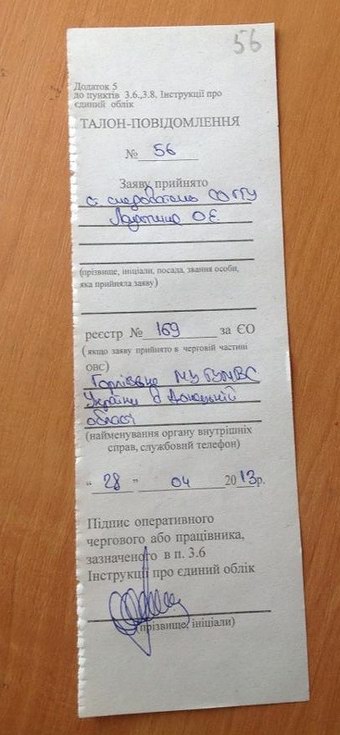 56
Додаток 5
до пунктів 3.6.,3.8. Інструкції про
єдиний облік
ТАЛОН-ПОВІДОМЛЕННЯ
№ 56
Заяву прийнято
О.Є.
(прізвище, ініціали, посада, звання особи,
яка прийняла заяву)
реєстр № 169 за ЄО
(якщо заяву прийнято в черговій частині
ОВС)
Горлівське МУ ГУМВС
України в Донецькій
області
(найменування органу внутрішніх
справ, службовий телефон)
" 28 " 04 2013р.
Підпис оперативного
чергового або працівника,
зазначеного в п. 3.6
Інструкції про єдиний облік
(прізвище, ініціали)